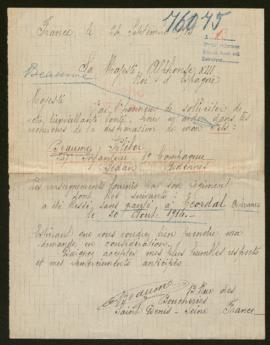 France, le 26 Septembre
76045
Beaumé
Sa Majesté Alphonse XIII
Roi d'Espagne
Majesté
J'ai l'honneur de solliciter de
votre bienveillante bonté, pour m'aider dans les
recherches de la disparition de mon fils:
Beaumé,
Infanterie Compagnie
Sedan Ardennes
Les renseignements fournis par son régiment
sont les suivants:
a été blessé, sans parlé, à Ecordal
le 30 Août 1914.
Espérant que vous voudrez bien prendre ma
demande en considération.
Daignez accepter mes plus humbles respects
et mes remerciements anticipés
Beaumé
Rue des
Boucheries
Saint Denis - Seine France